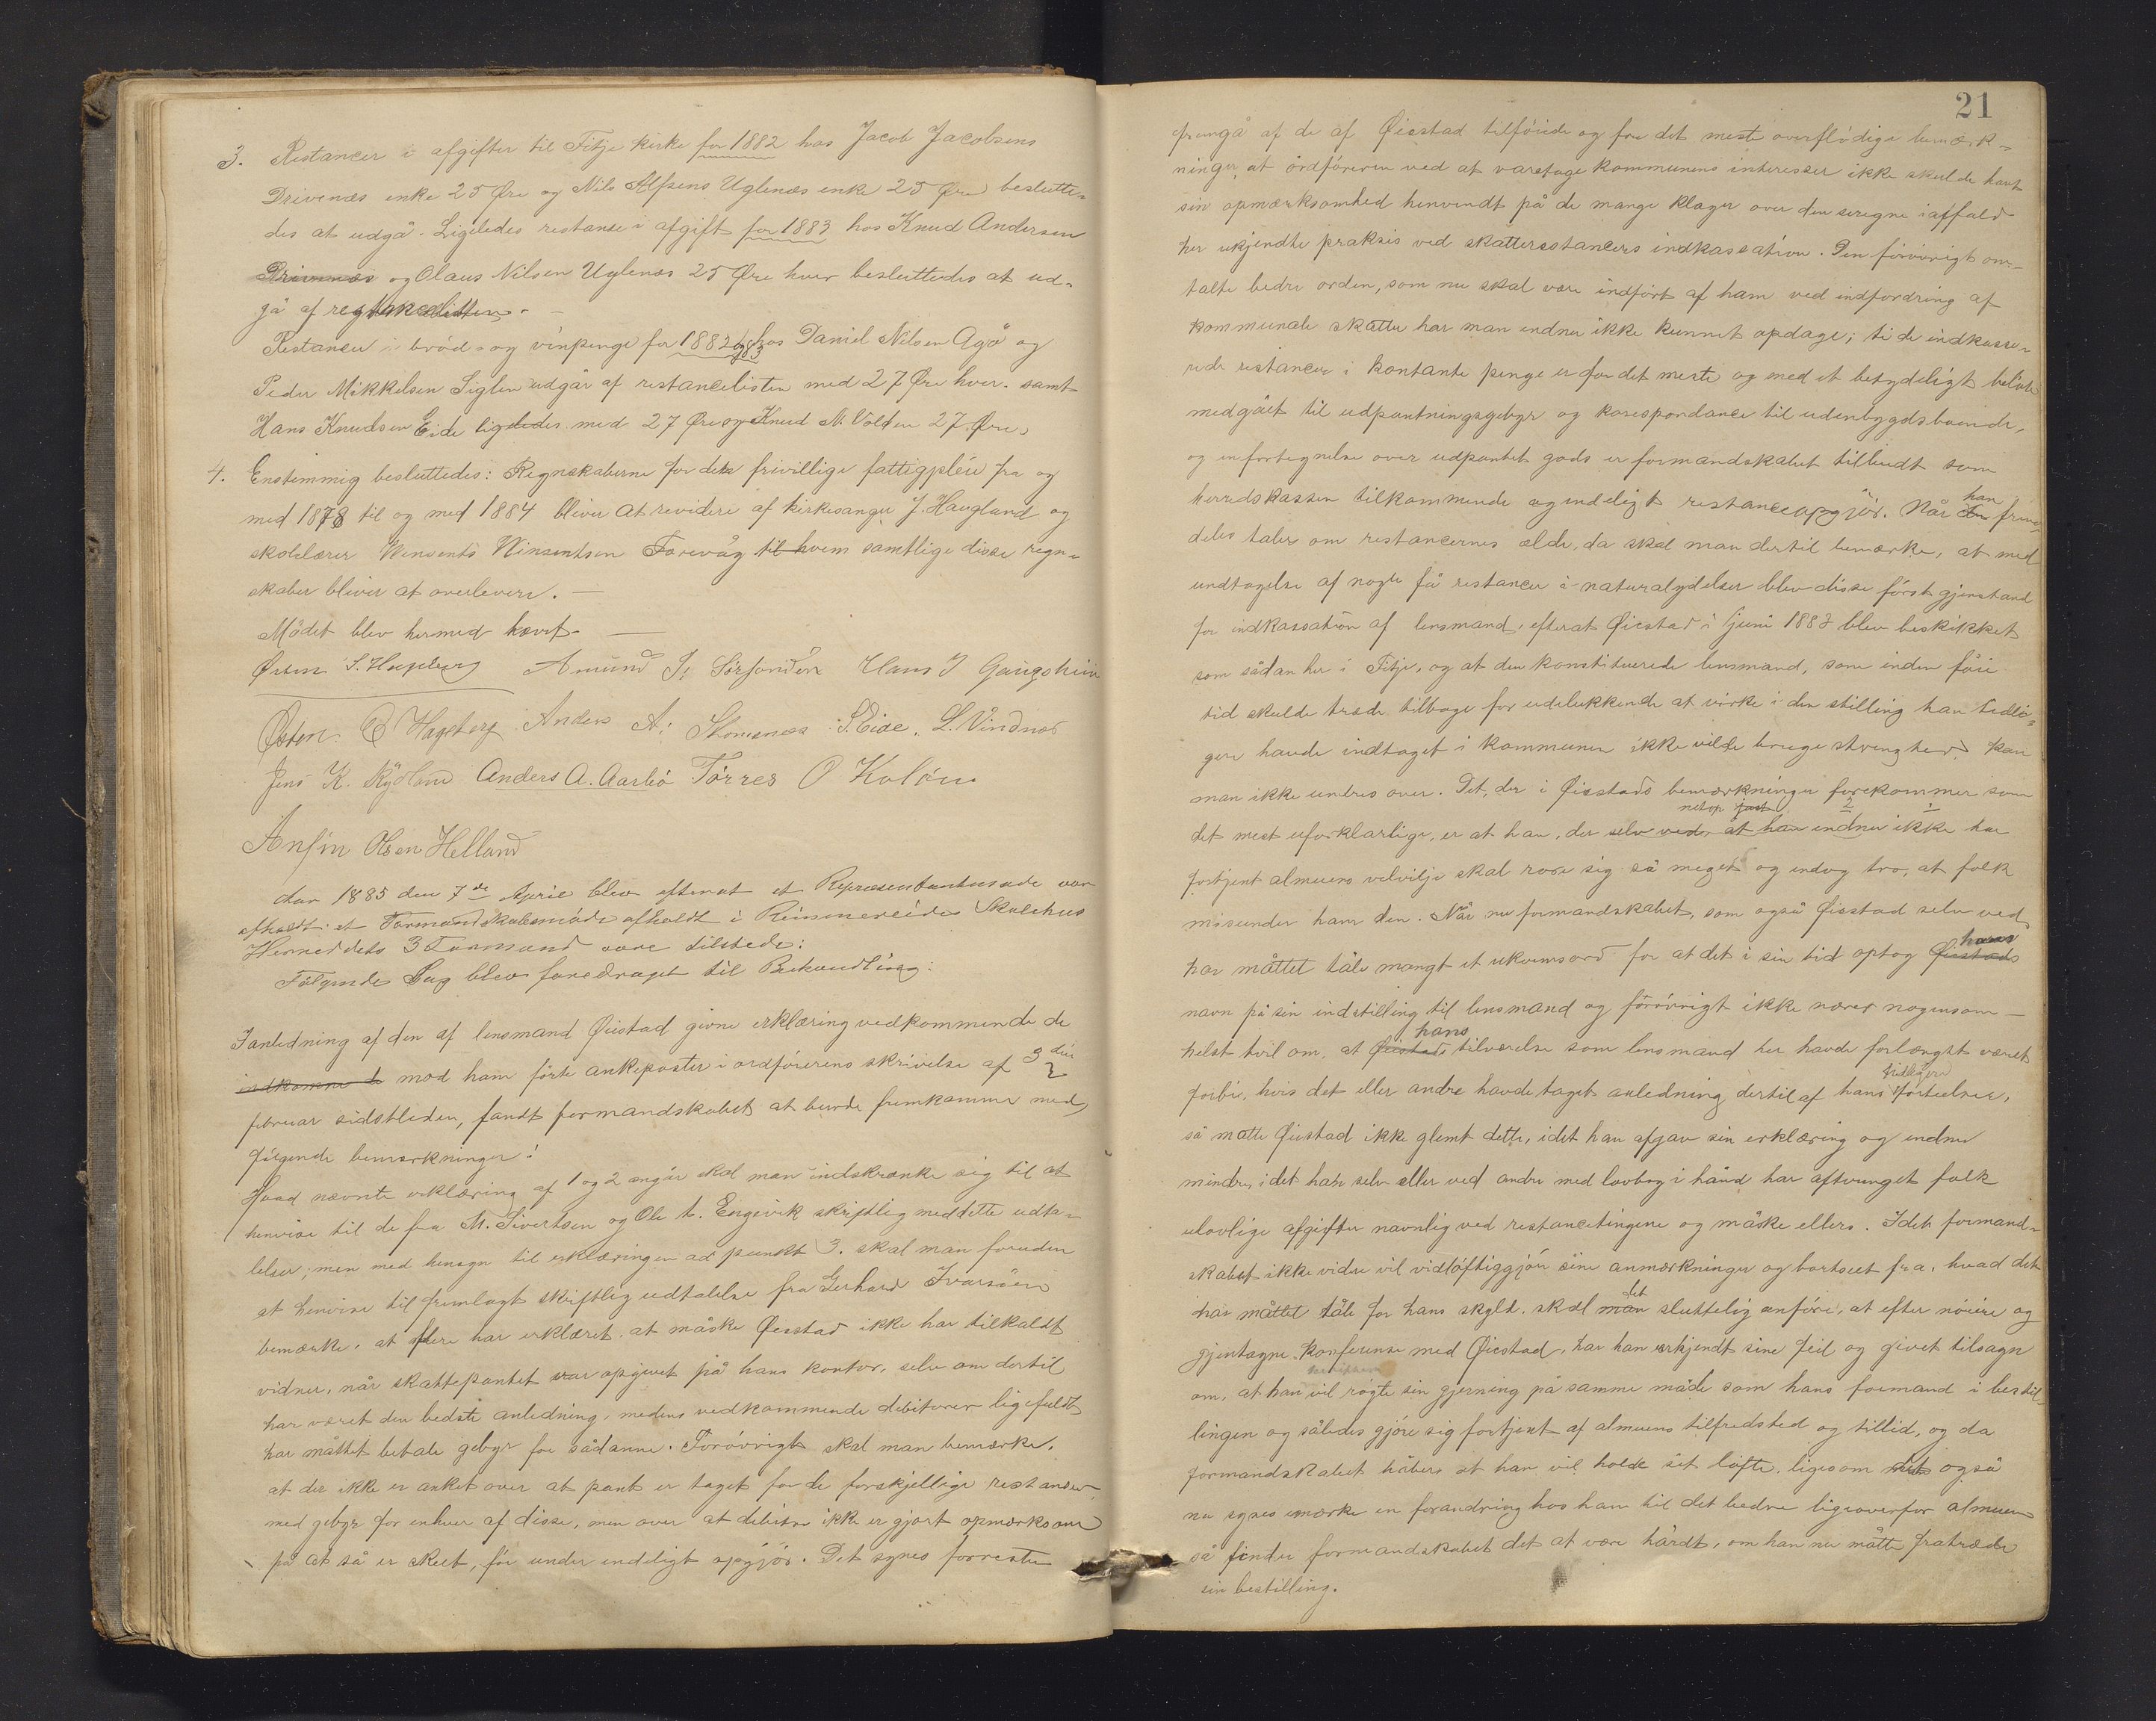 3. Restancer i afgifter til Fitje kirke for 1882 hos Jacob Jacobsens
Drivenæs enke 25 Øre og Nils Alfsens Uglenæs enke 25 Øre beslutte-
des at udgå. Ligeledes restanse i afgift for 1883 hos Knud Andersen
Drivenæs og Olaus Nilsen Uglenæs 25 Øre hver besluttedes at ud-
gå af restancelisten. —
Restancer i bröd- og vinpenge for 1882 og 83 hos Daniel Nilsen Agö og
Peder Mikkelsen Siglen udgår af restancelisten med 27 Øre hver. samt
Hans Knudsen Eide ligeledes med 27 Øre og Knud N. Volden 27 Øre.
4. Enstemmig besluttedes: Regnskaberne for den frivillige fattigpleie fra og
med 1878 til og med 1884 bliver at revidere af kirkesanger J. Haugland og
skolelærer Vinsents Vinsentsen Forevåg til hvem samtlige disse regn-
skaber bliver at overlevere. —
Mödet blev hermed hævet. —
Østen S. Hageberg Amund S. Sörfonden Hans J Gaugstein
Østen O Hageberg Anders A. Stomenæs S. Eide. L. Vindnæs
Jens K. Rydland Anders A. Aarbö Törres O Koløen
Anfin Olsen Helland
Aar 1885 den 7de April blev efterat et Repræsentantmöde var
afholdt et Formandskabsmöde afholdt i Rimmereides Skolehus
Herreddets 3 Formænd vare tilstede:
Fölgende Sag blev foredraget til Behandling:
I anledning af den af lensmand Øiestad givne erklæring vedkommende de
indkomne de mod ham förte ankeposter i ordförerens skrivelse af 3die
februar sidstleden, fandt formandskabet at burde fremkomme med
fölgende bemærkninger:
Hvad nævnte erklæring af 1 og 2 angår skal man indskrænke sig til at
henvise til de fra M. Sivertsen og Ole t. Engevik skriftlig meddelte udta-
lelser; men med hensyn til erklæringen ad punkt 3. skal man foruden
at henvise til fremlagt skriftlig udtalelse fra Gerhard Ivarsöen
bemærke, at flere har erklæret, at måske Øiestad ikke har tilkaldt
vidner, når skattepantet var opgivet på hans kontor, selv om dertil
har været den bedste anledning, medens vedkommende debitorer ligefuldt
har måttet betale gebyr for sådanne. Forövrigt skal man bemærke,
at der ikke er anket over at pant er taget for de forskjellige restanser
med gebyr for enhver af disse, men over at debitor ikke er gjort opmærksom
på at så er skeet, för under endeligt opgjör. Det synes forresten
21
fremgå af de af Øiestad tilföiede og for det meste overflödige bemærk-
ninger, at ordföreren ved at varetage kommunens interesser ikke skulde havt
sin opmærksomhed henvendt på de mange klager over den seregne iaffald
her ukjendte praksis ved skatterestancers indkassation. Den förövrigt om-
talte bedre orden, som nu skal være indfört af ham ved indfordring af
kommunale skatter har man endnu ikke kunnet opdage; ti de indkasse-
rede restancer i kontante penge er for det meste og med et betydeligt belöb
medgået til udpantningsgebyr og korespondance til udenbygdsboende,
og en fortegnelse over udpantet gods er formandskabet tilbudt som
herredskassen tilkommende og endeligt restanceopgjör. Når han frem-
deles taler om restancernes ælde, da skal man dertil bemærke, at med
undtagelse af nogle få restancer i naturalydelser blev disse först gjenstand
for indkassation af lensmand, efterat Øiestad i juni 1883 blev beskikket
som sådan her i Fitje, og at den konstituerede lensmand, som inden föie
tid skulde træde tilbage for udelukkende at virke i den stilling han tidli-
gere havde indtaget i kommunen ikke vilde bruge strenghed kan
man ikke undres over. Det, der i Øiestads bemærkninger forekommer som
netop just 2 1
det mest uforklarlige, er at han, der selv ved, at han endnu ikke har
fortjent almuens velvilje skal rose sig så meget og endog tro, at folk
misunder ham den. Når nu formandskabet, som også Øiestad selv ved
hans
har måttet tåle mangt et ukvemsord for at det i sin tid optog Øiestads
navn på sin indstilling til lensmand og förövrigt ikke nærer nogensom-
hans
helst tvil om, at Øiestads tilværelse som lensmand her havde forlængst været
tidligere
forbi, hvis det eller andre havde taget anledning dertil af hans forteelser,
så måtte Øiestad ikke glemt dette, idet han afgav sin erklæring og endnu
mindre, idet han selv eller ved andre med lovbog i hånd har aftvunget folk
ulovlige afgifter navnlig ved restancetingene og måske ellers. Idet formand-
skabet ikke videre vil vidlöftiggjöre sine anmærkninger og bortseet fra, hvad det
det
har måttet tåle for hans skyld, skal man sluttelig anföre, at efter nöiere og
gjentagne konferense med Øiestad, har han erkjendt sine feil og givet tilsagn
om, at han vil rögte sin gjerning på samme måde som hans formand i bestil-
lingen og således gjöre sig fortjent af almuens tilfredshed og tillid, og da
formandskabet håbers at han vil holde sit löfte, ligesom det også
nu synes mærke en forandring hos ham til det bedre ligeoverfor almuen
så finder formandskabet det at være hårdt, om han nu måtte fratræde
sin bestilling.